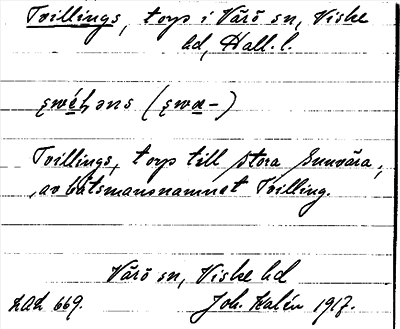 Tvillings, torp i Värö sn, Viske
hd, Hall. l.
Tvillings, torp till Stora Sunvära,
av båtsmansnamnet Tvilling.
Värö sn, Viske hd
kad 669. Joh. Kalén 1917.